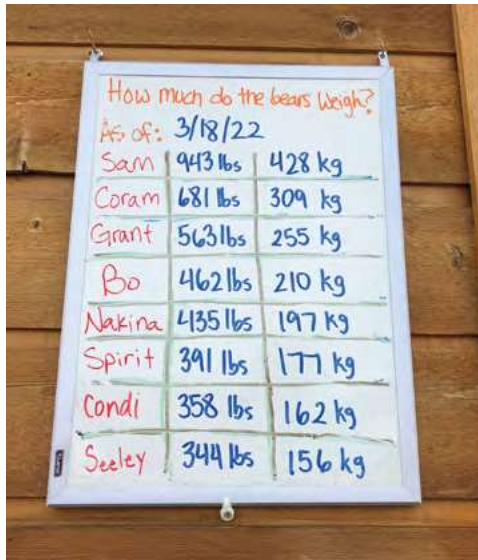 How much do the bears weigh?
As of: 3/18/22
Sam 943 lbs 428 kg
Coram 681 lbs 309 kg
Grant 563 lbs 255 kg
Bo 462 lbs 210 kg
Nakina 435 lbs 197 kg
Spirit 391 lbs 177 kg
Condi 358 lbs 162 kg
Seeley 344 lbs 156 kg